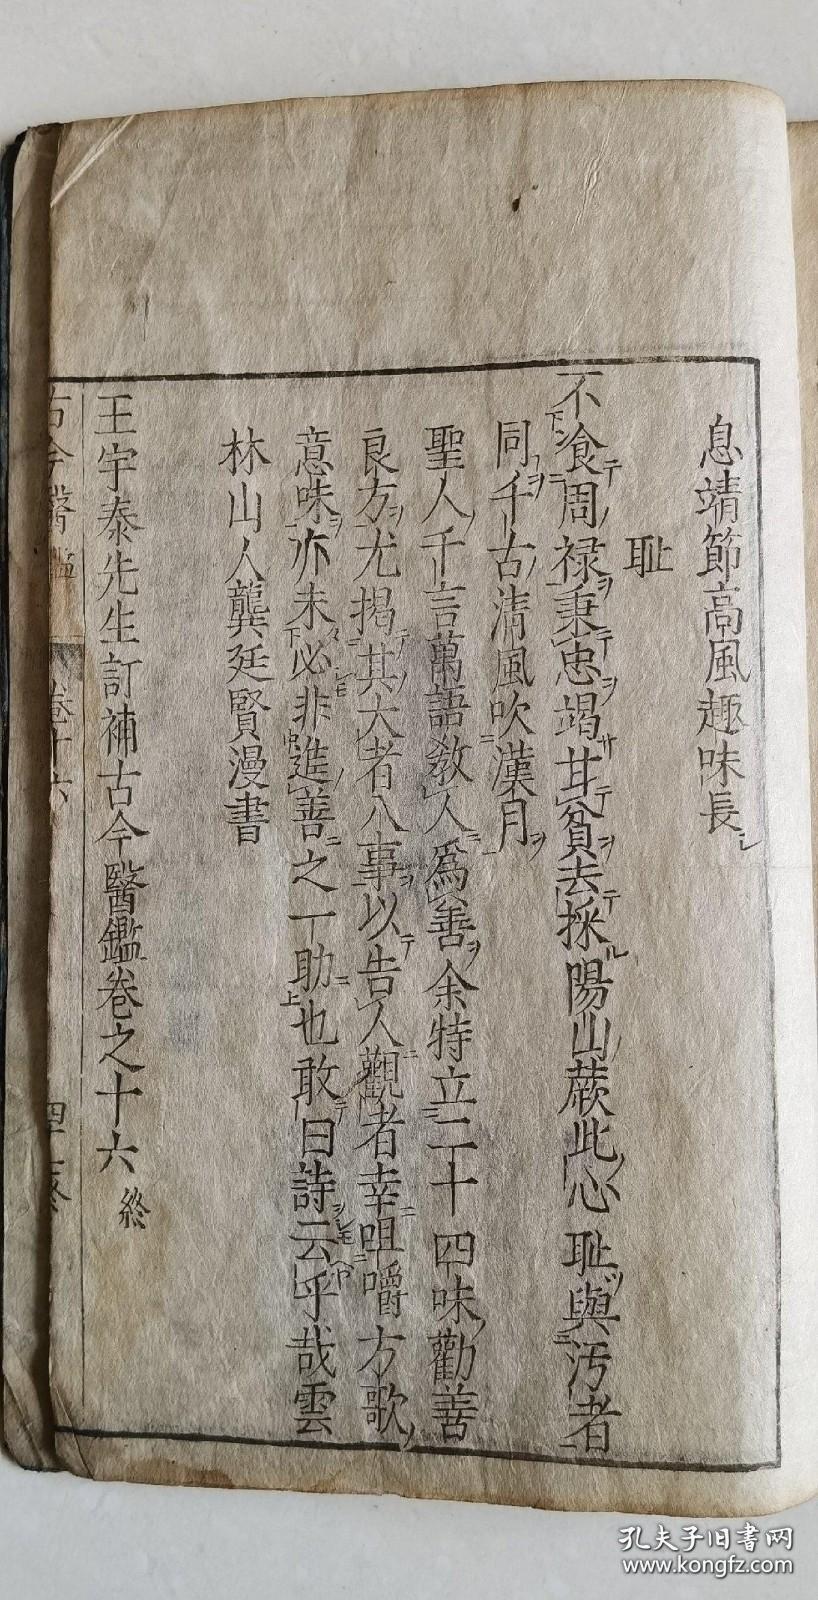 息靖節高風趣味長
耻
不飡周禄秉忠竭甘貧去採陽山蕨此心耻與汚者
同千古清風吹漢月
聖人千言萬語教人爲善余特立二十四味勸善
良方尤揭其大者八事以告人觀者幸咀嚼方歌
意味亦未必非進善之一助也敢曰詩云乎哉雲
林山人龔廷賢漫書
王宇泰先生訂補古今醫鑑卷之十六 終
古今醫鑑 卷十六
孔夫子旧书网
www.kongfz.com